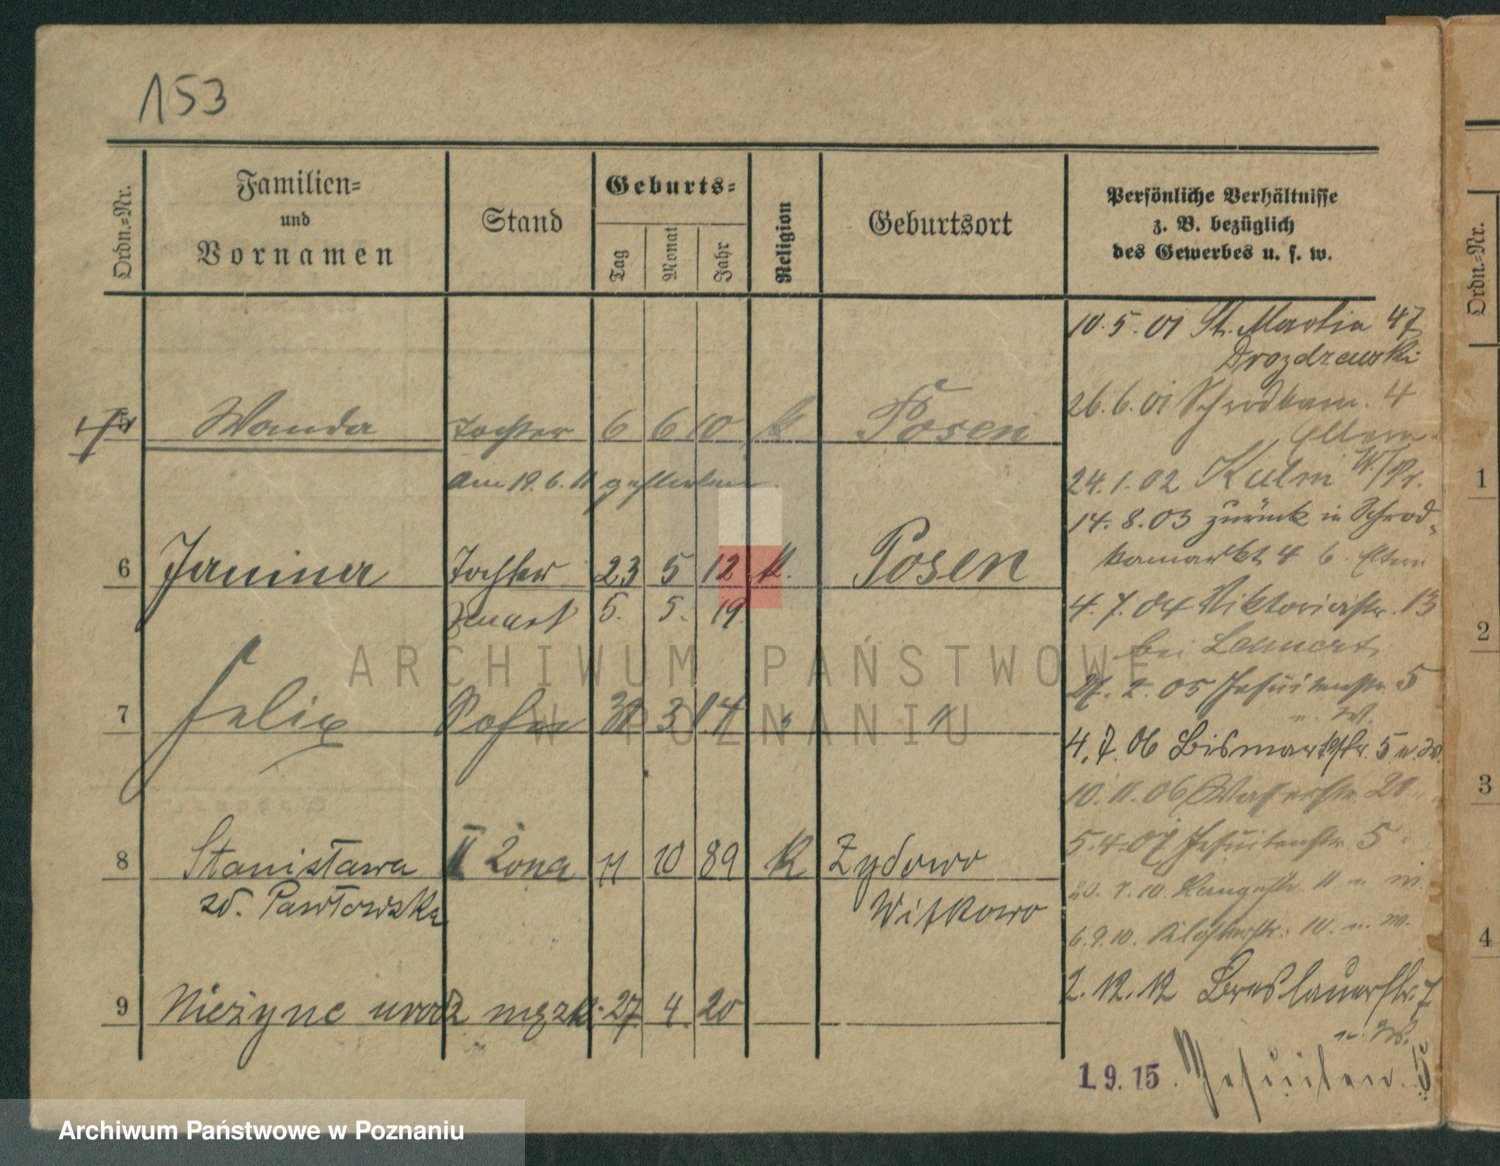 153
Ordn.=Nr.
Familien=
und
Vornamen
Stand
Geburts=
Tag
Monat
Jahr
Religion
Geburtsort
Persönliche Verhältnisse
z. B. bezüglich
des Gewerbes u. s. w.
5 Wanda Tochter 6 6 10 k. Posen
am 19.6.11 gestorben.
6 Janina Tochter 23 5 12 k. Posen
zmarł 5. 5. 19.
7 Felix Sohn 3 14 " "
8 Stanisława II żona 11 10 89 k Żydowo
zd. Pawłowska Witkowo
9 Nieżyne urodz męzk. 27 4 20
10.5.01 St. Martin 47
Drozdzewski
26.6.01 Schrodkam. 4
Eltern
24.1.02 Kulm W/Pr.
14.8.03 zurück in Schrod-
kamarkt 4 b. Eltern
4.7.04 Viktoriastr. 13
bei
27.2.05 Jesuitenstr. 5
u. W.
4.7.06 Bismarkstr. 5 u. W.
10.11.06 Wasserstr. 21
5.4.07 Jesuitenstr. 5
20.7.10 Langestr. 11 u W.
6.9.10. Klosterstr. 10. u. W.
2.12.12 Breslauerstr. 7
u. W.
1.9.15. Jesuiten. 5
Ordn.=Nr.
1
2
3
4
ARCHIWUM PAŃSTWOWE
W POZNANIU
Archiwum Państwowe w Poznaniu